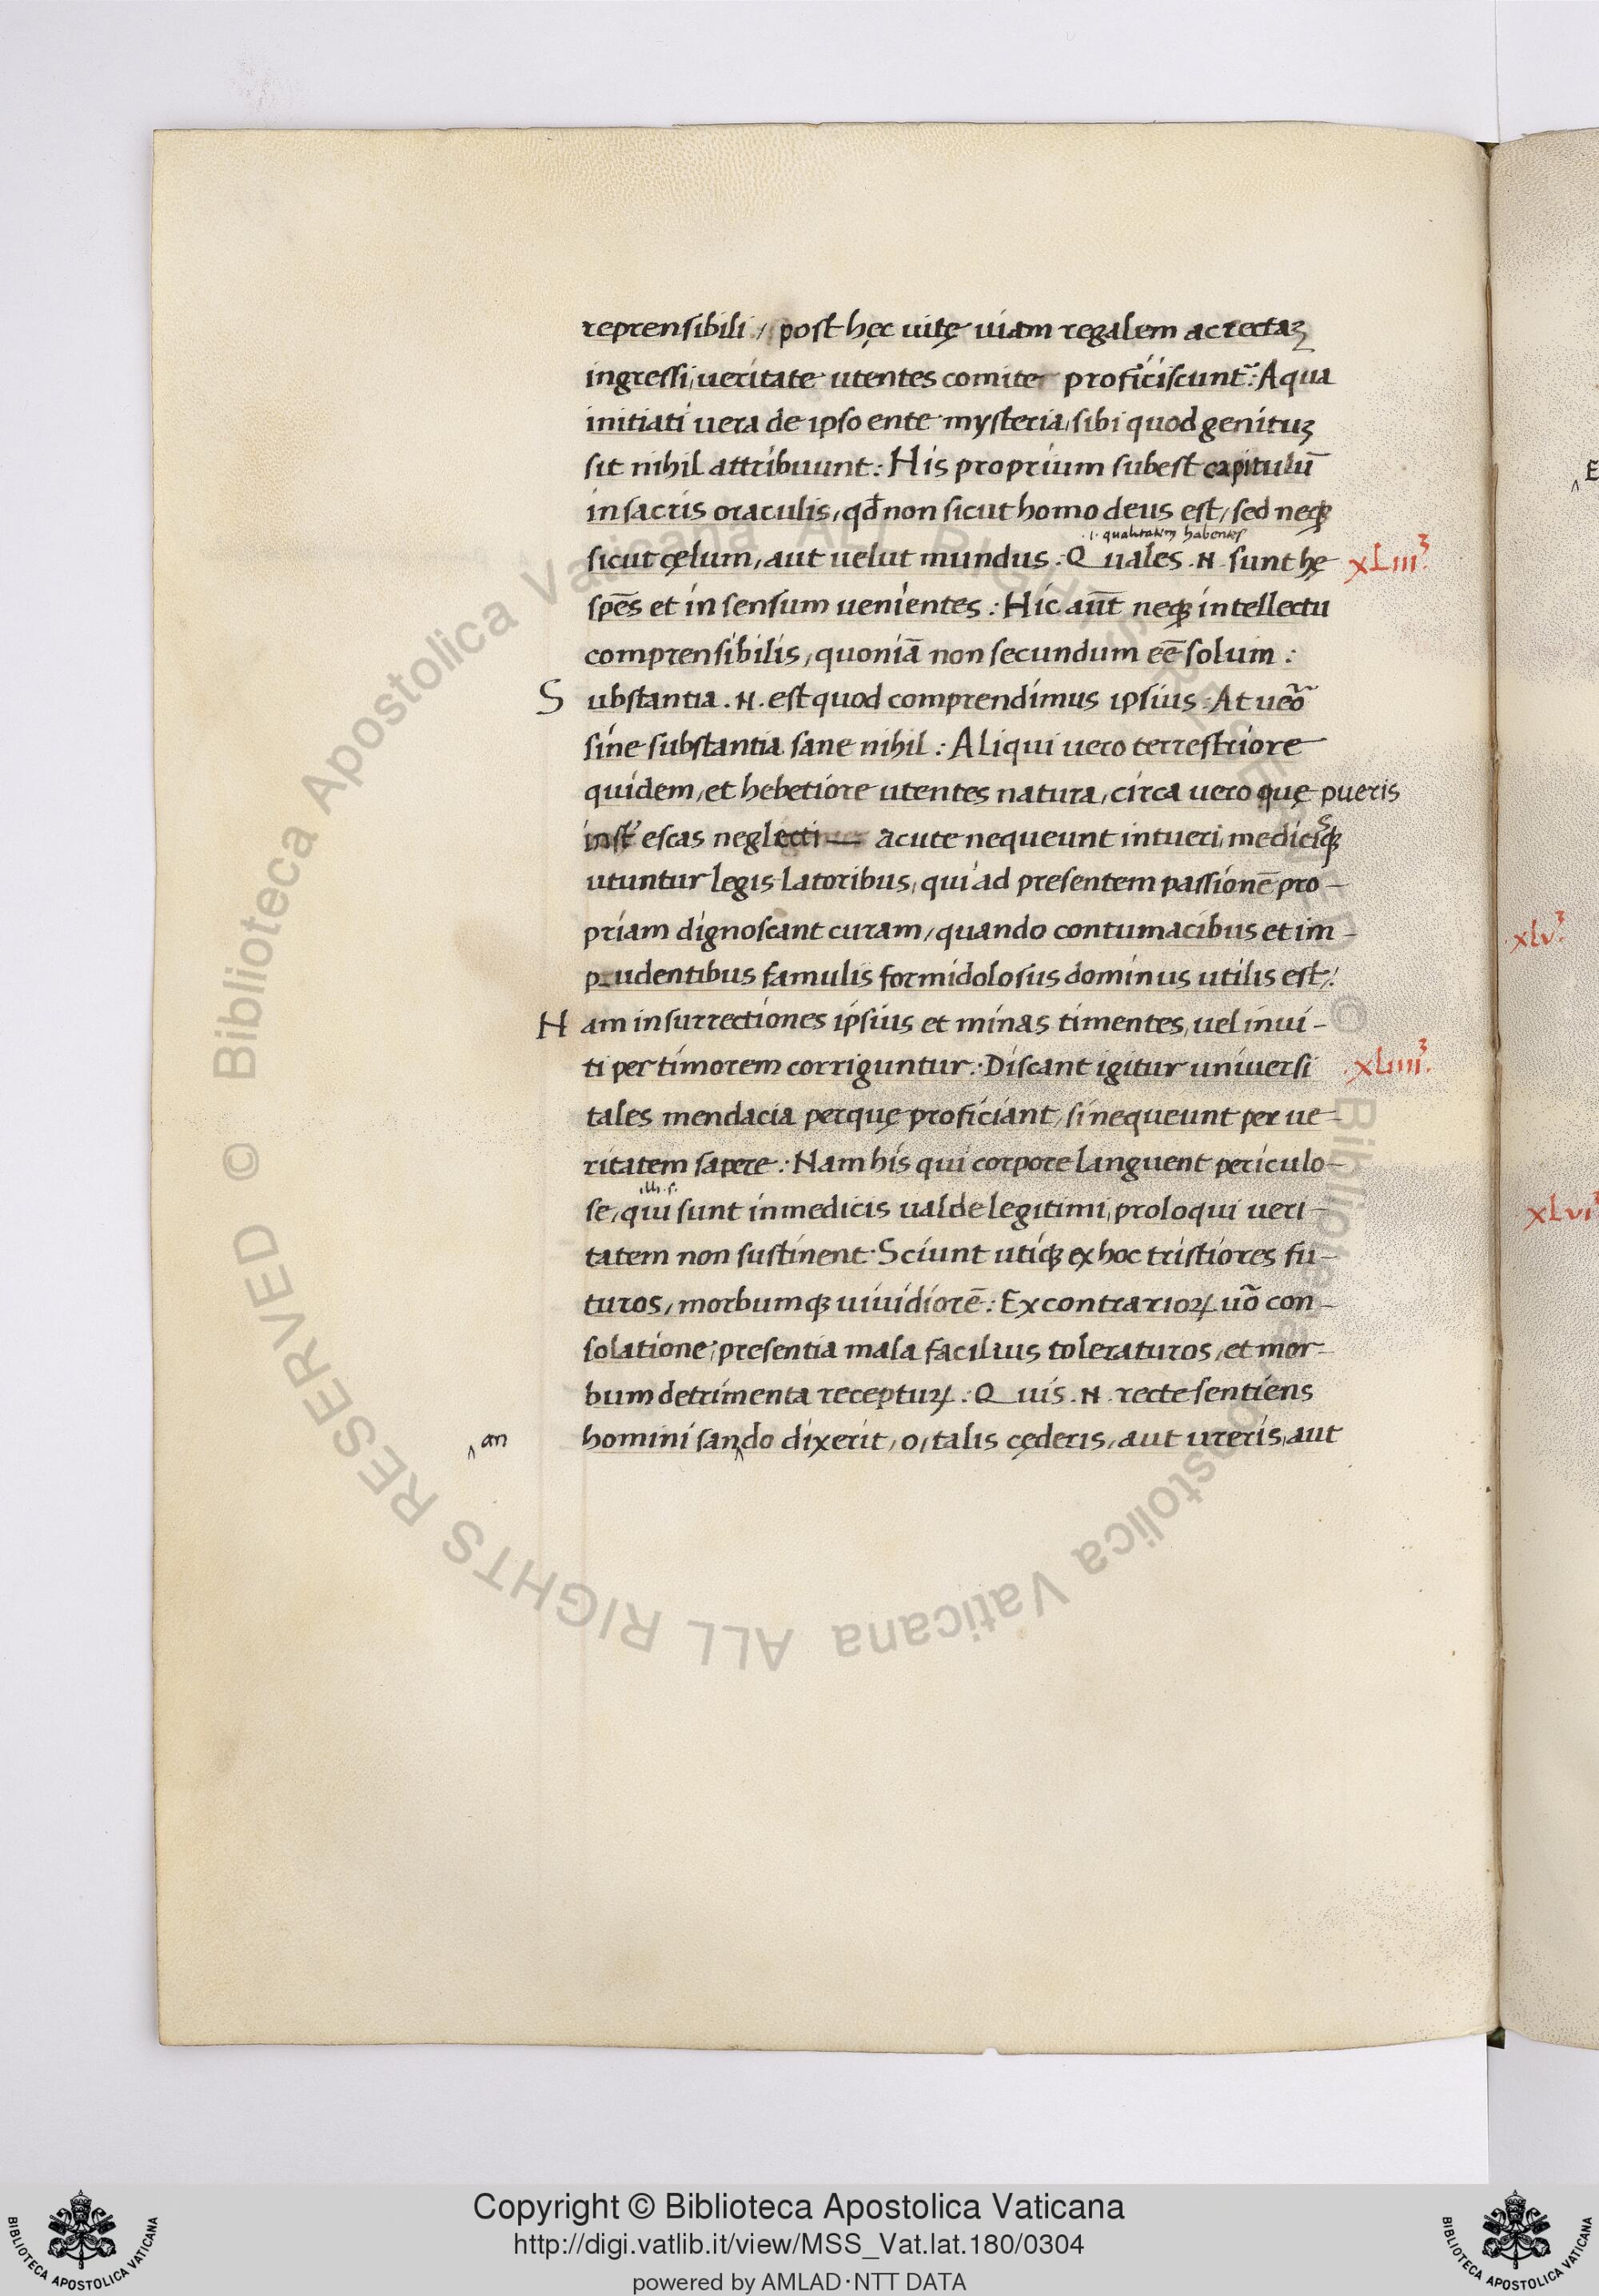 reprensibili / post hęc uitę uiam regalem ac rectaȝ
ingressi, ueritate utentes comite proficiscunt᷑: A qua
initiati uera de ipso ente mysteria, sibi quod genituȝ
sit nihil attribuunt: His proprium subest capitulū
in sacris oraculis, qđ non sicut homo deus est, sed neqꝫ
.i. qualitatem habentes
sicut cęlum, aut uelut mundus. Quales .N. sunt hę
xLiii.ȝ
spēs et in sensum uenientes: Hic aūt neqꝫ intellectu
comprensibilis, quoniā non secundum eē solum:
Substantia .N. est quod comprendimus ipsius. At ueõ
sine substantia sane nihil: Aliqui uero terrestriore
quidem, et hebetiore utentes natura, circa uero quę pueris
inst᷑ escas neglecti — acute nequeunt intueri, medicisqꝫ
utuntur legis latoribus, qui ad presentem passionē pro-
priam dignoscant curam, quando contumacibus et im-
prudentibus famulis formidolosus dominus utilis est:
Nam insurrectiones ipsius et minas timentes, uel inui-
ti per timorem corriguntur: Discant igitur uniuersi
.xLiiii.ȝ
tales mendacia perquę proficiant, si nequeunt per ue-
ritatem sapere: Nam his qui corpore languent periculo-
illi .s.
se, qui sunt in medicis ualde legitimi, proloqui ueri-
tatem non sustinent. Sciunt utiqꝫ ex hoc tristiores fu-
turos, morbumqꝫ uiuidiorē: Ex contrarioꝝ uõ con-
solatione, presentia mala facilius toleraturos, et mor-
bum detrimenta receptuꝝ: Quis .N. recte sentiens
homini san‸do dixerit, o, talis cęderis, aut ureris, aut
‸an
.xlv.ȝ
xLvi
Copyright © Biblioteca Apostolica Vaticana
http://digi.vatlib.it/view/MSS_Vat.lat.180/0304
powered by AMLAD·NTT DATA
BIBLIOTECA APOSTOLICA VATICANA
BIBLIOTECA APOSTOLICA VATICANA
© Biblioteca Apostolica Vaticana ALL RIGHTS RESERVED © Biblioteca Apostolica Vaticana ALL RIGHTS RESERVED